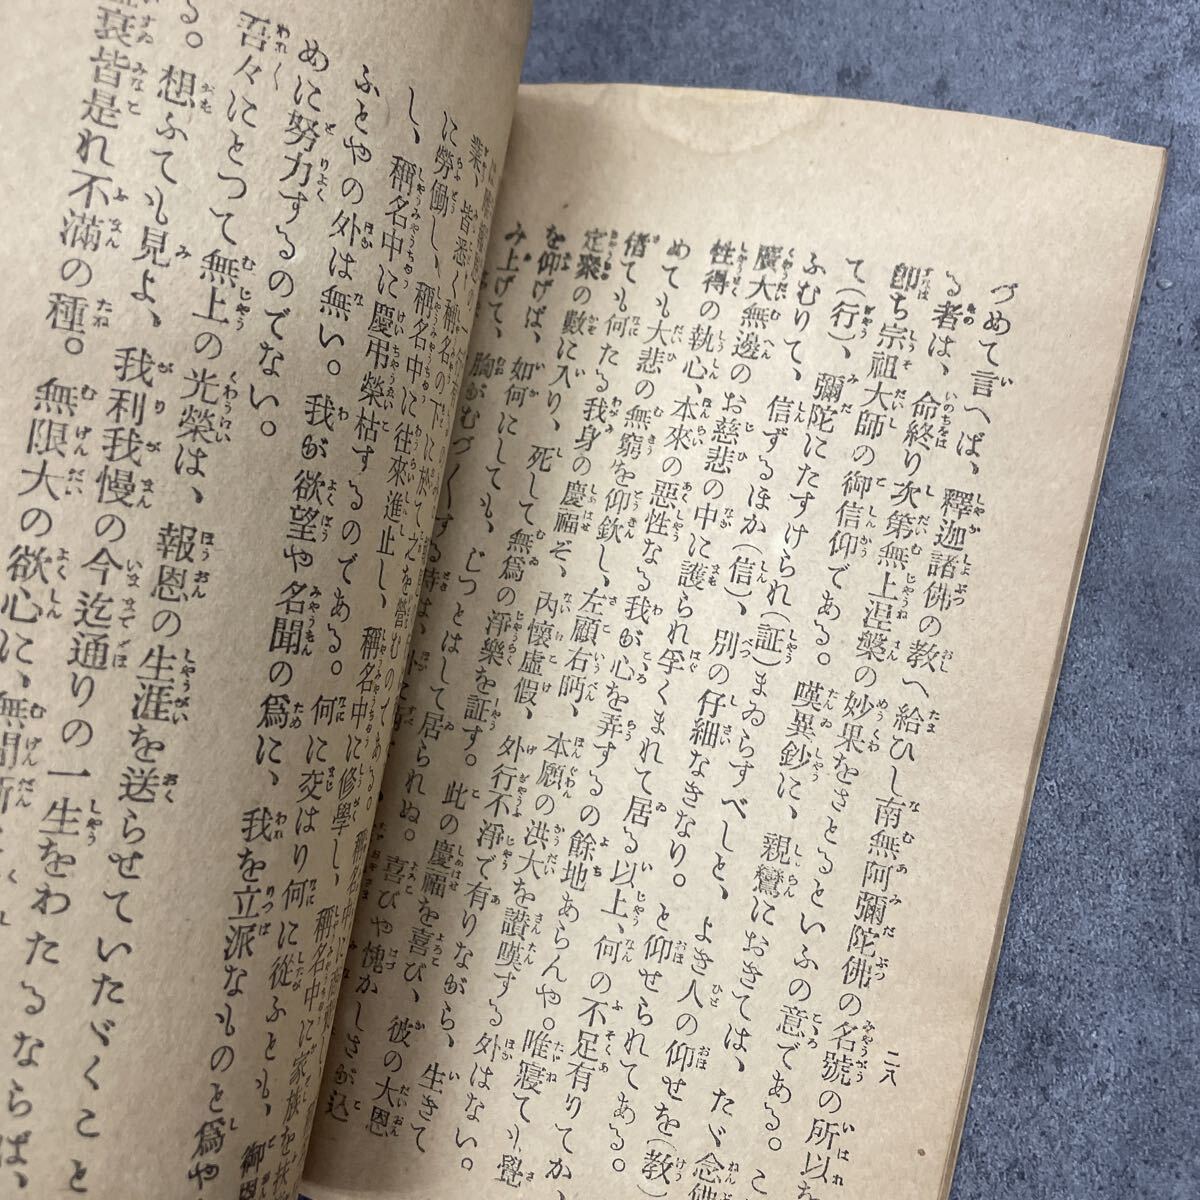 二八
づめて言へば、釋迦諸佛の教へ給ひし南無阿彌陀佛の名號の所以を
る者は、命終り次第無上涅槃の妙果をさとるといふの意である。こ
卽ち宗祖大師の御信仰である。嘆異鈔に、親鸞におきては、たゞ念佛
て(行)、彌陀にたすけられ(証)まゐらすべしと、よき人の仰せを(教)
ふむりて、信ずるほか(信)、別の仔細なきなり。と仰せられてある。
廣大無邊のお慈悲の中に護られ孚くまれて居る以上、何の不足有りてか、
性得の執心、本來の惡性なる我が心を弄するの餘地あらんや。唯寢ても覺
めても大悲の無窮を仰欽し、左顧右眄、本願の洪大を讃嘆する外はない。
偖ても何たる我身の慶福ぞ、内懷虛假、外行不淨で有りながら、生きて
定聚の數に入り、死して無爲の淨樂を証す。此の慶福を喜び、彼の大恩
を仰げば、如何にしても、じつとはして居られぬ。喜びや愧かしさが込
み上げて、胸がむづ〱する
業、皆悉く稱名の下に於て之を營むのである。
に勞働し、稱名中に往來進止し、稱名中に修學し、稱名中に家族を扶
し、稱名中に慶弔榮枯するのである。何に交はり何に從ふとも、御恩
ふとやの外は無い。我が欲望や名聞の爲に、我を立派なものと爲や
めに努力するのでない。
吾々にとつて無上の光榮は、報恩の生涯を送らせていたゞくこと
る。想ふても見よ、我利我慢の今迄通りの一生をわたるならば、
衰皆是れ不滿の種。無限大の欲心に、無間斷